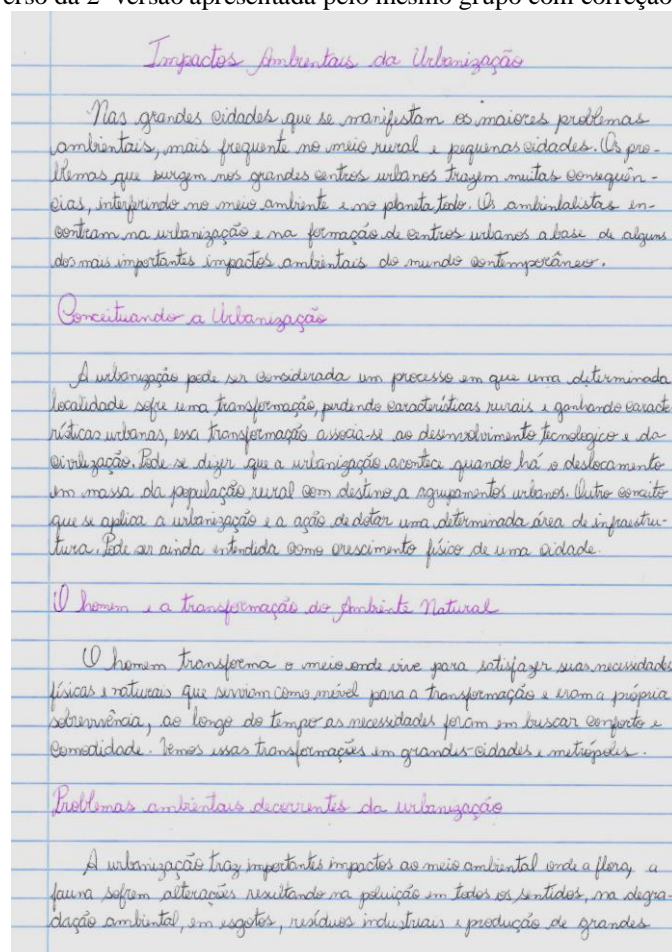 erso da 2ª versão apresentada pelo mesmo grupo com correção
Impactos Ambientais da Urbanização
Nas grandes cidades que se manifestam os maiores problemas
ambientais, mais frequente no meio rural e pequenas cidades. Os pro-
blemas que surgem nos grandes centros urbanos trazem muitas consequên-
cias, interferindo no meio ambiente e no planeta todo. Os ambintalistas en-
contram na urbanização e na formação de centros urbanos a base de alguns
dos mais importantes impactos ambientais do mundo contemporâneo.
Conceituando a Urbanização
A urbanização pode ser considerada um processo em que uma determinada
localidade sofre uma transformação, perdendo características rurais e ganhando caracte
rísticas urbanas, essa transformação associa-se ao desenvolvimento tecnologico e da
civilização. Pode se dizer que a urbanização acontece quando há o deslocamento
em massa da população rural com destino a agrupamentos urbanos. Outro conceito
que se aplica a urbanização e a ação de dotar uma determinada área de infraestru-
tura. Pode ser ainda entendida como crescimento físico de uma cidade.
O homem e a transformação do Ambiente Natural
O homem transforma o meio onde vive para satisfazer suas necessidades
físicas e naturais que serviam como móvel para a transformação e eram a própria
sobrevivência, ao longo do tempo as necessidades foram em buscar conforto e
comodidade. Vemos essas transformações em grandes cidades e metrópoles.
Problemas ambientais decorrentes da urbanização
A urbanização traz importantes impactos ao meio ambiental onde a flora, a
fauna sofrem alterações resultando na poluição em todos os sentidos, na degra-
dação ambiental, em esgotos, resíduos industriais e produção de grandes